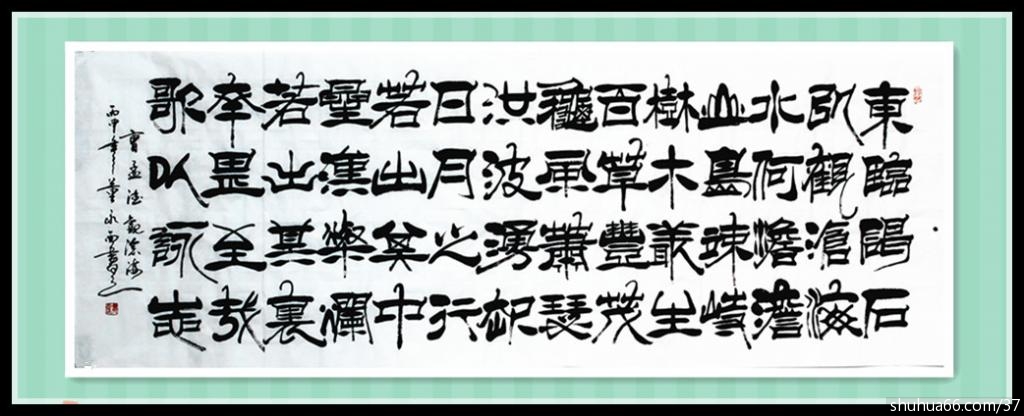 東臨碣石
以觀滄海
水何澹澹
山島竦峙
樹木叢生
百草豐茂
龝風蕭瑟
洪波湧起
日月之行
若出其中
星漢燦瀾
若出其裏
幸甚至哉
歌以詠志
曹孟德觀滄海
丙申年
shuhua66.com/37